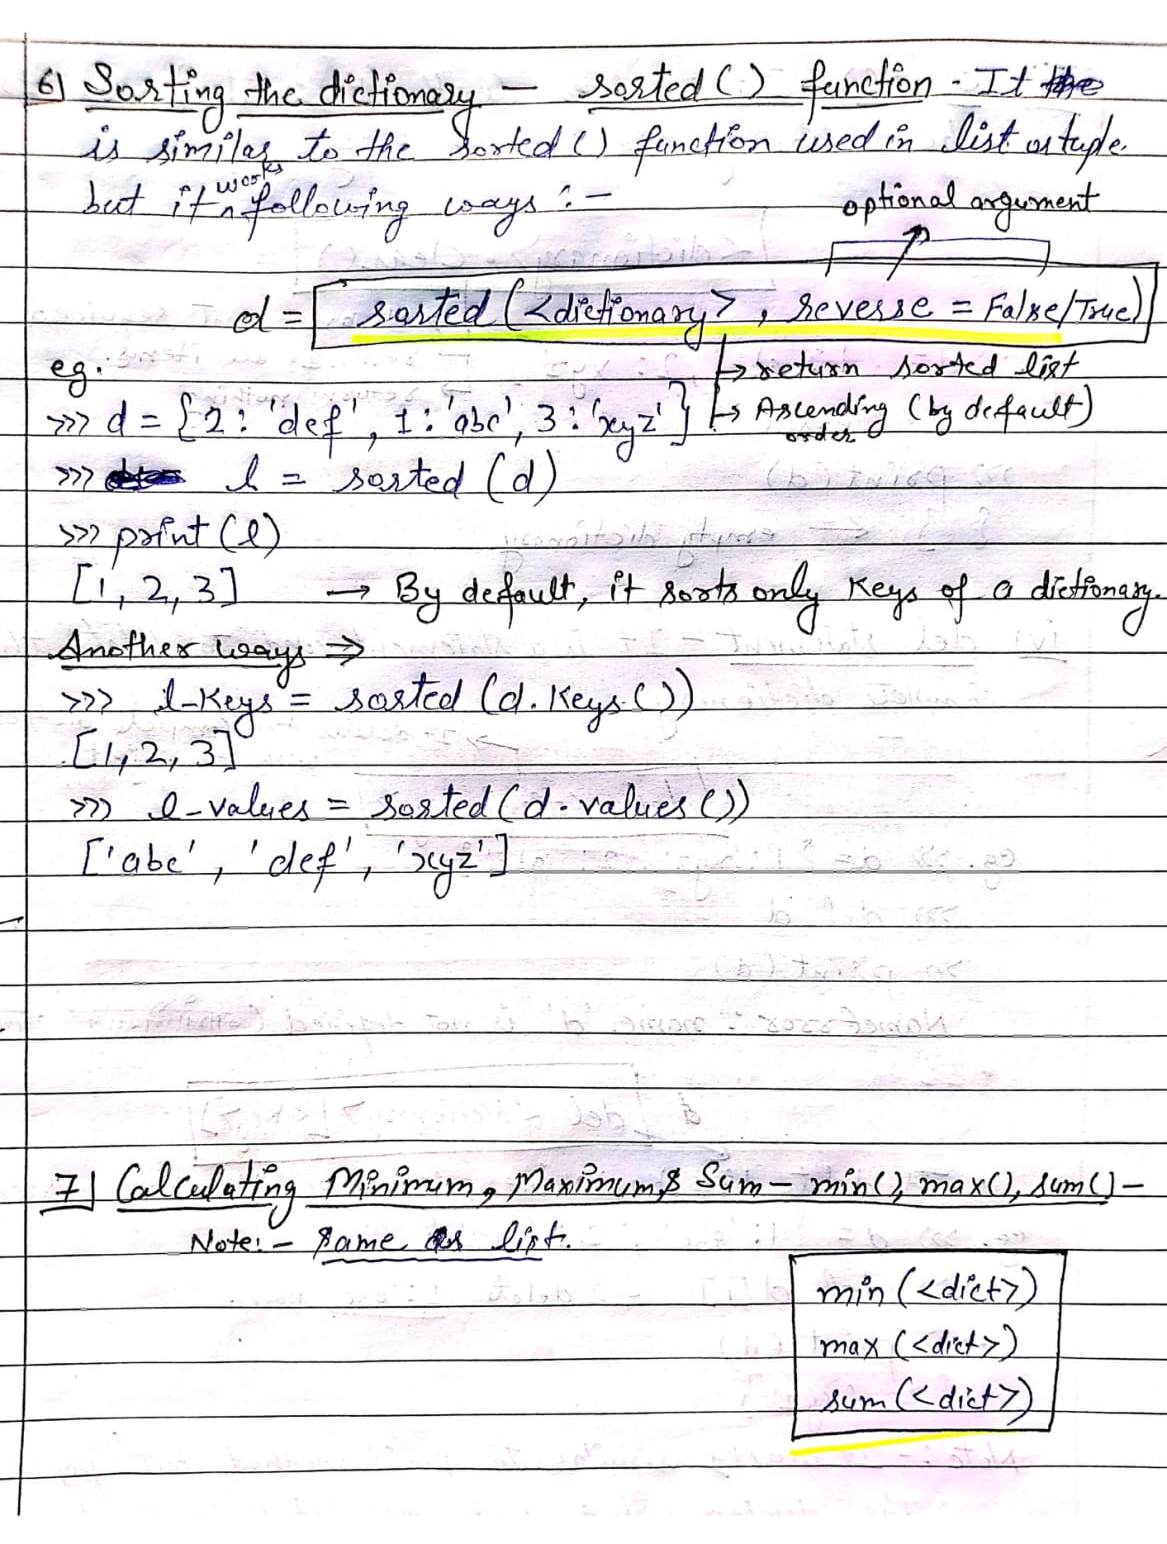 6) Sorting the dictionary — sorted() function - It
is similar to the sorted() function used in list or tuple.
but it works following ways :-
optional argument
d = sorted(<dictionary>, reverse = False/True)
eg.
→ return sorted list
>>> d = {2: 'def', 1: 'abc', 3: 'xyz'}
→ Ascending (by default)
order
>>> l = sorted (d)
>>> print (l)
[1, 2, 3] → By default, it sorts only Keys of a dictionary.
Another ways ⇒
>>> l-Keys = sorted (d.Keys())
[1, 2, 3]
>>> l-values = sorted (d.values())
['abc', 'def', 'xyz']
7) Calculating Minimum, Maximum, & Sum — min(), max(), sum() -
Note:- same as list.
min (<dict>)
max (<dict>)
sum (<dict>)